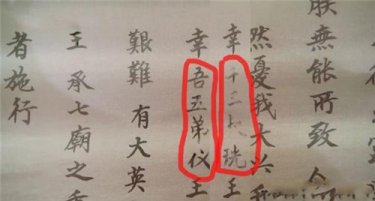 朕無能所致
然憂我大兴
幸十三珖王
幸吾五弟仪王
艱難 有大英
王 承七廟之
者施行